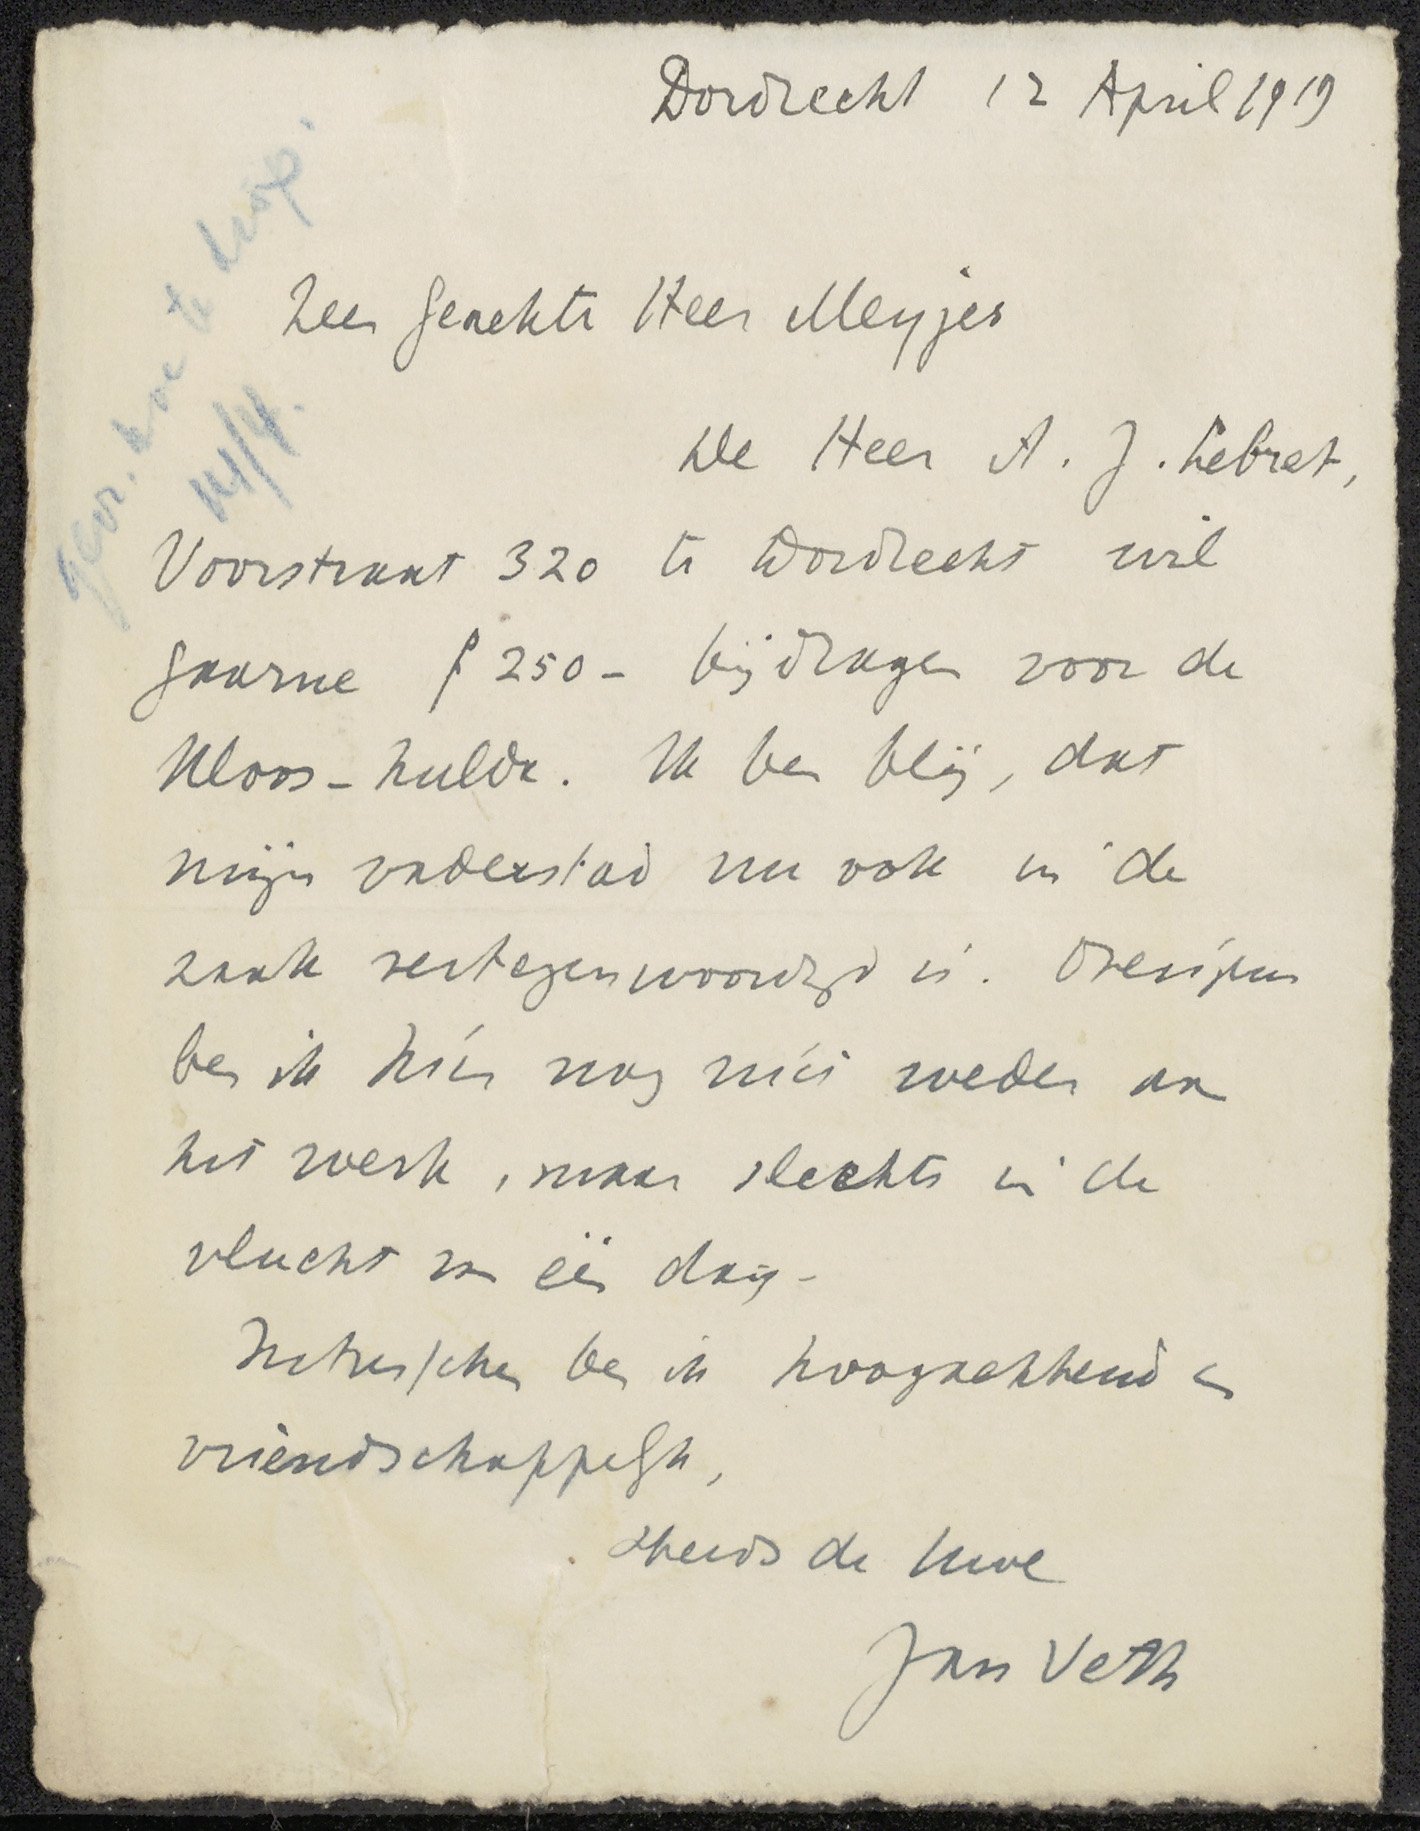 Dordrecht 12 April 1919
Zeer Geachte Heer Meyjes
De Heer A. J. Lebret,
Voorstraat 320 te Dordrecht wil
gaarne f 250 – bijdragen voor de
Kloos-hulde. Ik ben blij, dat
mijn vaderstad nu ook in de
zaak vertegenwoordigd is. Overigens
ben ik hier nog niet weder aan
het werk, maar slechts in de
vlucht van één dag –
Intusschen ben ik hoogachtend en
vriendschappelijk,
steeds de Uwe
Jan Veth
14/4.